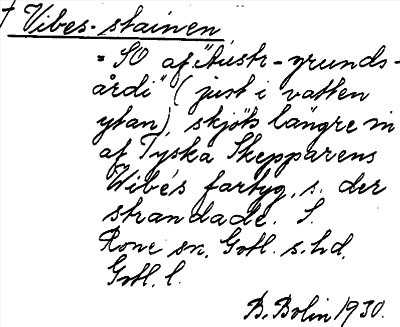 † Vibes-stainen
= SO af "austr-grunds-
årdi" (just i vatten
ytan), skjöts längre in
af Tyska Skepparens
Wibes fartyg, s. der
strandade. S.
Rone sn. Gotl. s. hd.
Gotl. l.
B. Bolin 1930.